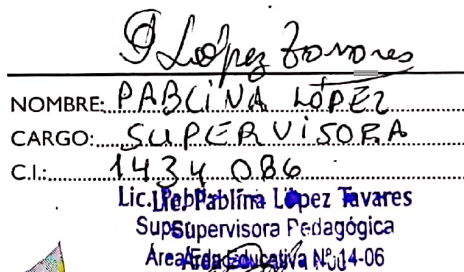 P López Tavares
NOMBRE: PABLINA LÓPEZ
CARGO: SUPERVISORA
C.I.: 1434 086
Lic. Pablina López Tavares
Supervisora Pedagógica
Área Educativa Nº 14-06